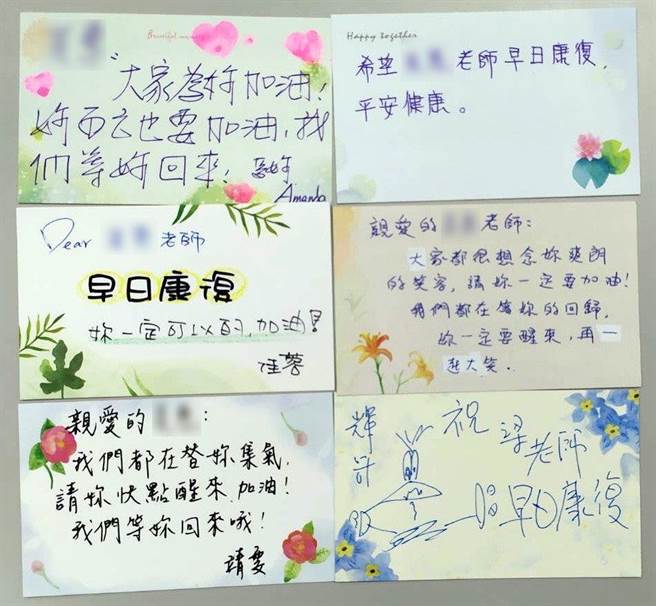 Beautiful
"大家為妳加油!
妳自己也要加油,我
們等妳回來!愛妳
Amanda
Happy together
希望 老師早日康復,
平安健康。
Dear 老師
早日康復
妳一定可以的,加油!
佳蓉
親愛的 老師:
大家都很想念妳爽朗
的笑容,請妳一定要加油!
我們都在等妳的回歸,
妳一定要醒來,再一
起大笑.
親愛的 :
我們都在替妳集氣,
請妳快點醒來,加油!
我們等妳回來哦!
靖雯
祝 梁老師
早日康復
輝